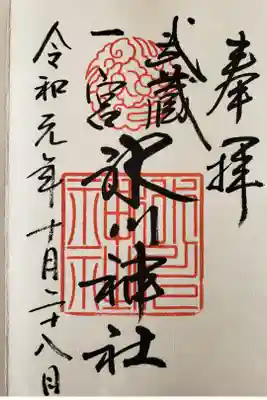 奉拝
武蔵
一宮
氷川神社
令和元年十月二十八日